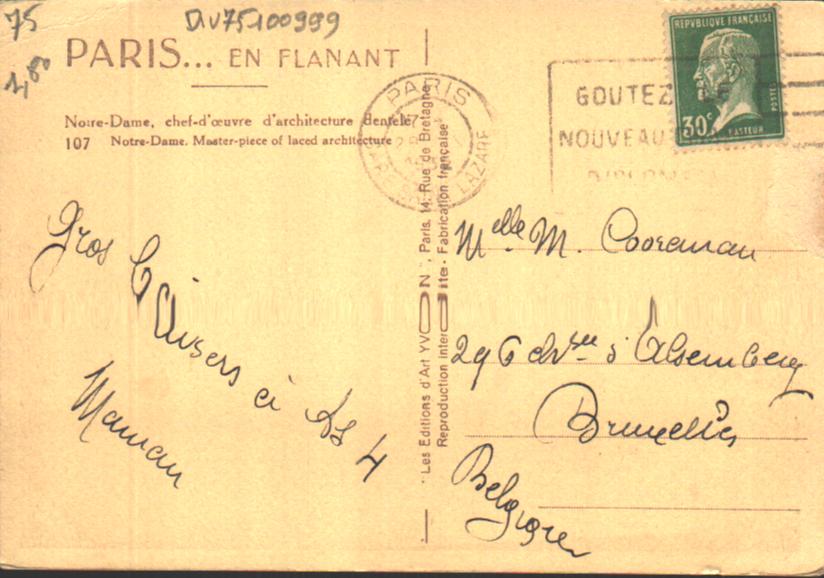 75
DIV75100999
1,80
PARIS... EN FLANANT
Notre-Dame, chef-d'œuvre d'architecture dentelé
107 Notre-Dame. Master-piece of laced architecture
PARIS
GARE LAZARE
GOUTEZ
NOUVEAU
REPUBLIQUE FRANÇAISE
POSTES
30c
PASTEUR
"Les Editions d'Art YVON", Paris, 14, Rue de Bretagne
Reproduction interdite - Fabrication française
Gros baisers à
Maman
Melle M. Cooreman
296 chsée d'Alsemberg
Bruxelles
Belgique